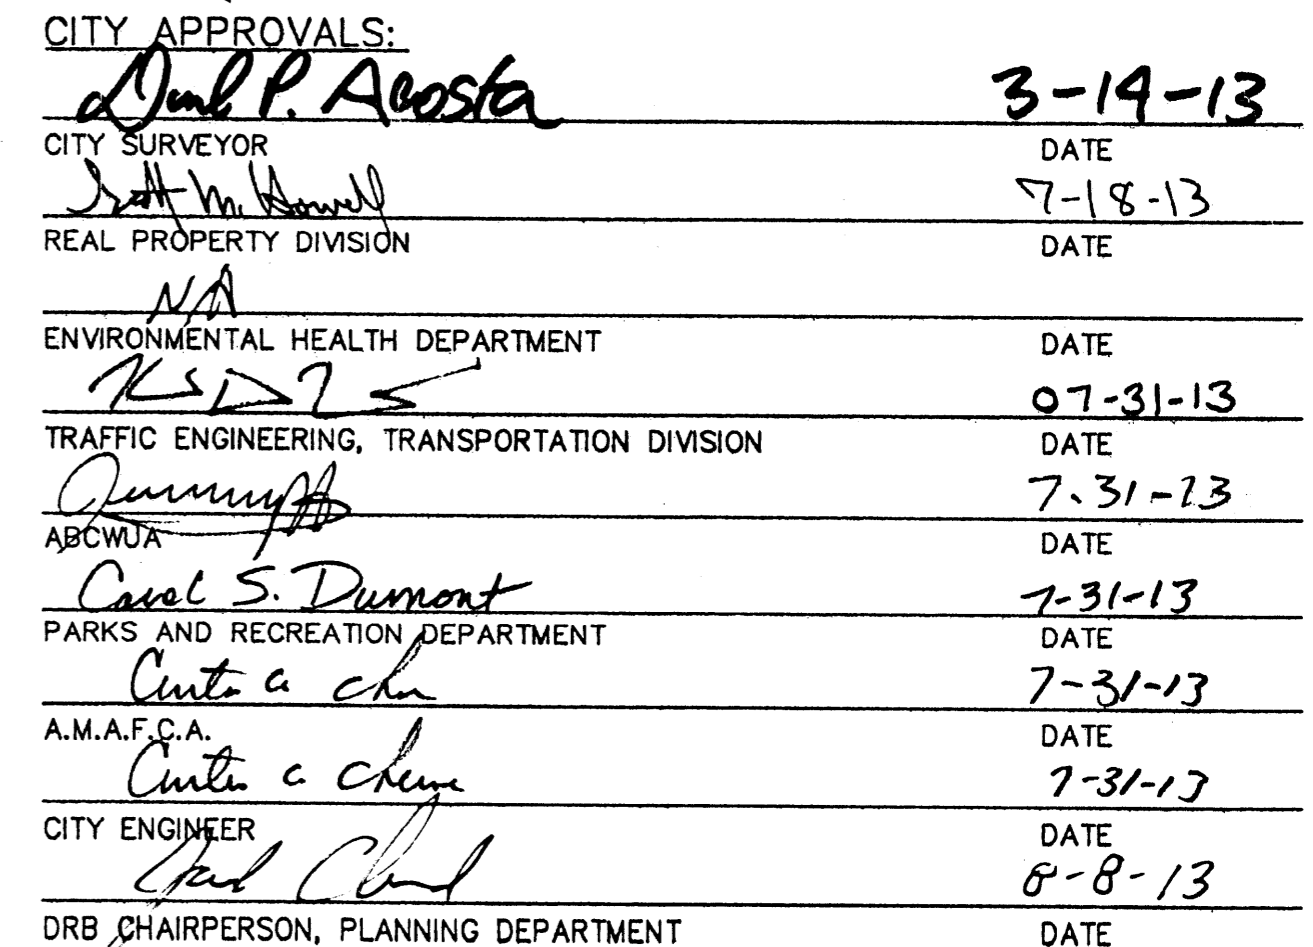 CITY APPROVALS:
P. Acosta 3-14-13
CITY SURVEYOR DATE
Scott M. Howell 7-18-13
REAL PROPERTY DIVISION DATE
N/A
ENVIRONMENTAL HEALTH DEPARTMENT DATE
07-31-13
TRAFFIC ENGINEERING, TRANSPORTATION DIVISION DATE
7-31-13
ABCWUA DATE
Carol S. Dumont 7-31-13
PARKS AND RECREATION DEPARTMENT DATE
Curtis a 7-31-13
A.M.A.F.C.A. DATE
Curtis a 7-31-13
CITY ENGINEER DATE
8-8-13
DRB CHAIRPERSON, PLANNING DEPARTMENT DATE